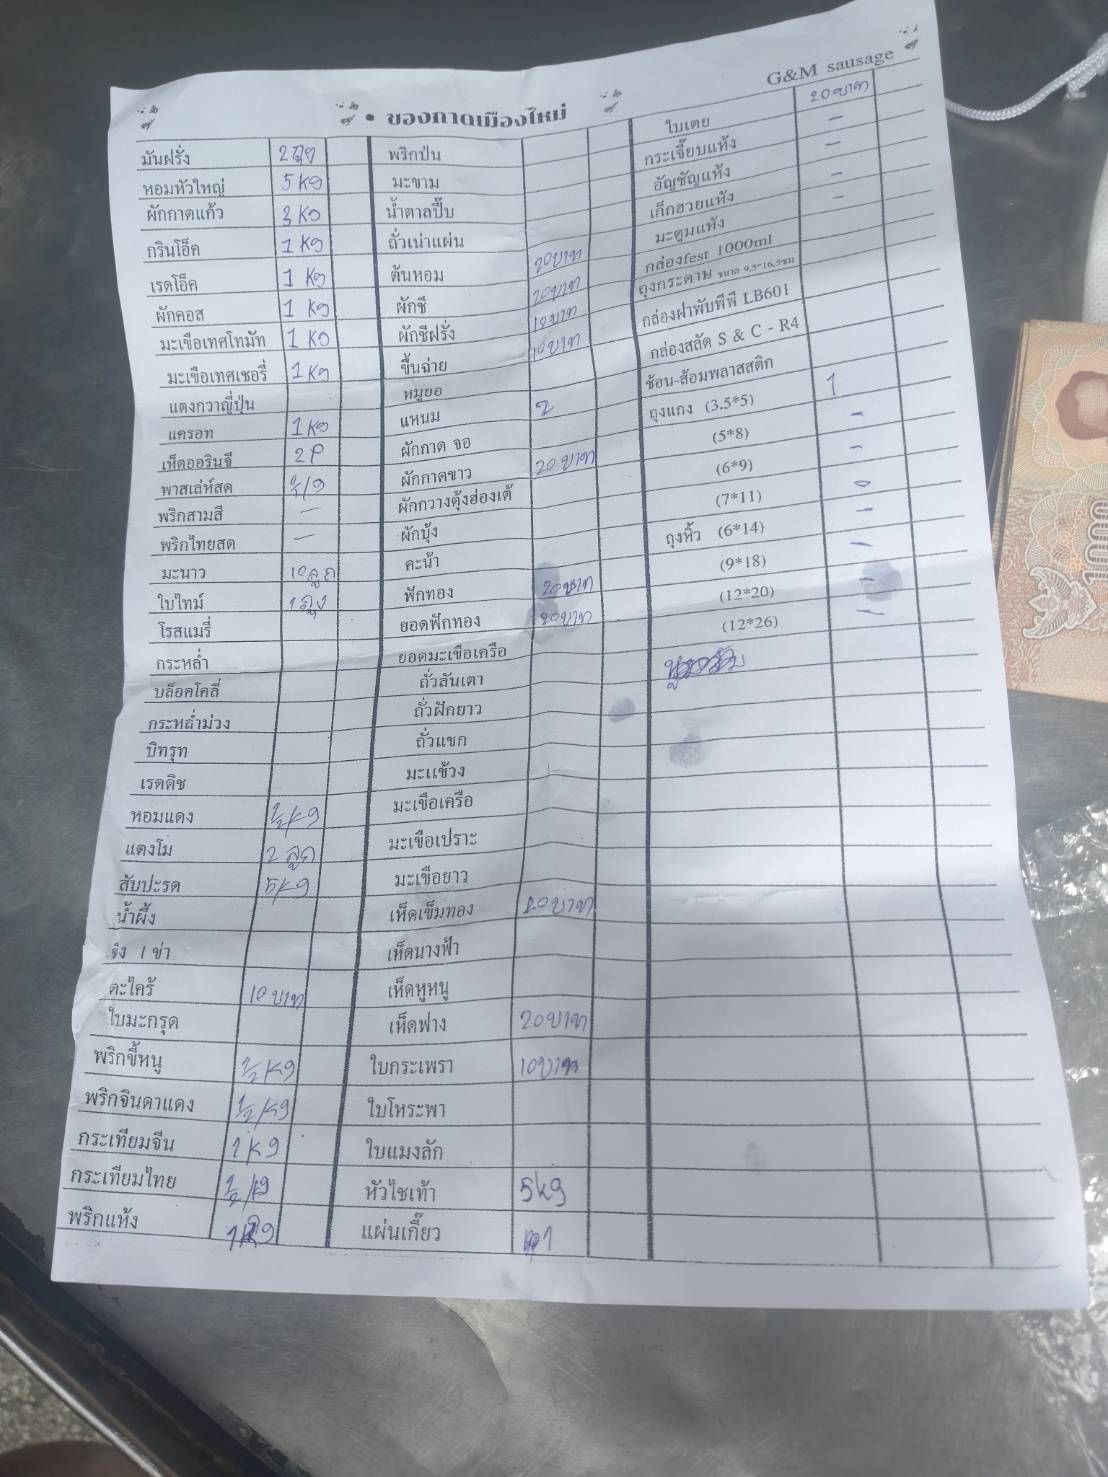 G&M sausage
• ของกาดเมืองใหม่
มันฝรั่ง 2ถุง
หอมหัวใหญ่ 5 Kg
ผักกาดแก้ว 3 Kg
กรินโอ็ค 1 Kg
เรดโอ็ค 1 Kg
ผักคอส 1 Kg
มะเขือเทศโทมัท 1 Kg
มะเขือเทศเชอรี่ 1 Kg
แตงกวาญี่ปุ่น
แครอท 1 Kg
เห็ดออรินจี 2P
พาสเล่ห์สด
พริกสามสี —
พริกไทยสด —
มะนาว 10ลูก
ใบไทม์ 1ถุง
โรสแมรี่
กระหล่ำ
บล็อคโคลี่
กระหล่ำม่วง
บิทรุท
เรดดิช
หอมแดง 1/2 Kg
แตงโม 2 ลูก
สับปะรด 5Kg
น้ำผึ้ง
ขิง / ข่า
ตะไคร้ 10 บาท
ใบมะกรุด
พริกขี้หนู 1/2 Kg
พริกจินดาแดง 1/2 Kg
กระเทียมจีน 1 Kg
กระเทียมไทย 1/2 Kg
พริกแห้ง
พริกป่น
มะขาม
น้ำตาลปี๊บ
ถั่วเน่าแผ่น
ต้นหอม 20บาท
ผักชี 20บาท
ผักชีฝรั่ง 10บาท
ขึ้นฉ่าย 10บาท
หมูยอ
แหนม 2
ผักกาด จอ
ผักกาดขาว 20 บาท
ผักกวางตุ้งฮ่องเต้
ผักบุ้ง
คะน้า
ฟักทอง 20บาท
ยอดฟักทอง 20บาท
ยอดมะเขือเครือ
ถั่วลันเตา
ถั่วฝักยาว
ถั่วแขก
มะแข้วง
มะเขือเครือ
มะเขือเปราะ
มะเขือยาว
เห็ดเข็มทอง 20บาท
เห็ดนางฟ้า
เห็ดหูหนู
เห็ดฟาง 20บาท
ใบกระเพรา 10บาท
ใบโหระพา
ใบแมงลัก
หัวไชเท้า 5kg
แผ่นเกี๊ยว 1
ใบเตย 20 บาท
กระเจี๊ยบแห้ง —
อัญชัญแห้ง —
เก็กฮวยแห้ง —
มะตูมแห้ง —
กล่องfest 1000ml
ถุงกระดาษ ขนาด 9.5*16.5ซม
กล่องฝาพับพีพี LB601
กล่องสลัด S & C - R4
ช้อน-ส้อมพลาสสติก
ถุงแกง (3.5*5) 1
(5*8) —
(6*9) —
(7*11) 0
ถุงหิ้ว (6*14) —
(9*18) —
(12*20) —
(12*26) —
1000